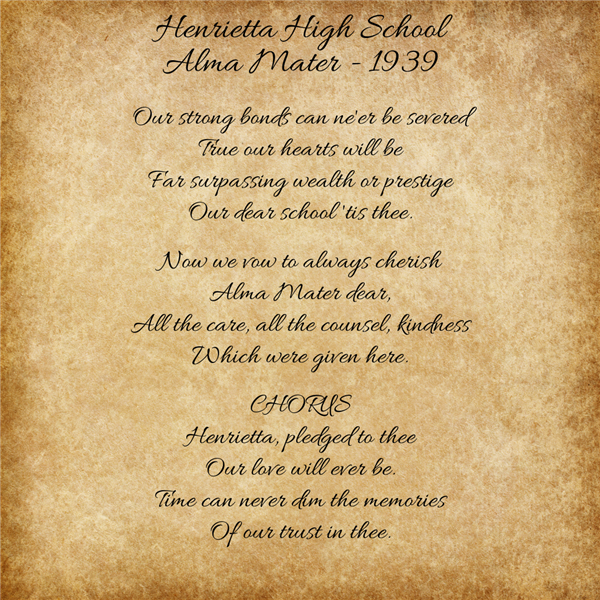 Henrietta High School
Alma Mater - 1939
Our strong bonds can ne'er be severed
True our hearts will be
Far surpassing wealth or prestige
Our dear school 'tis thee.
Now we vow to always cherish
Alma Mater dear,
All the care, all the counsel, kindness
Which were given here.
CHORUS
Henrietta, pledged to thee
Our love will ever be.
Time can never dim the memories
Of our trust in thee.